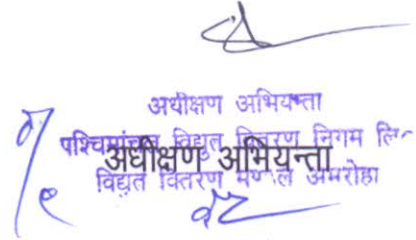 अधीक्षण अभियन्ता
पश्चिमांचल विद्युत वितरण निगम लि०
अधीक्षण अभियन्ता
विद्युत वितरण मण्डल अमरोहा